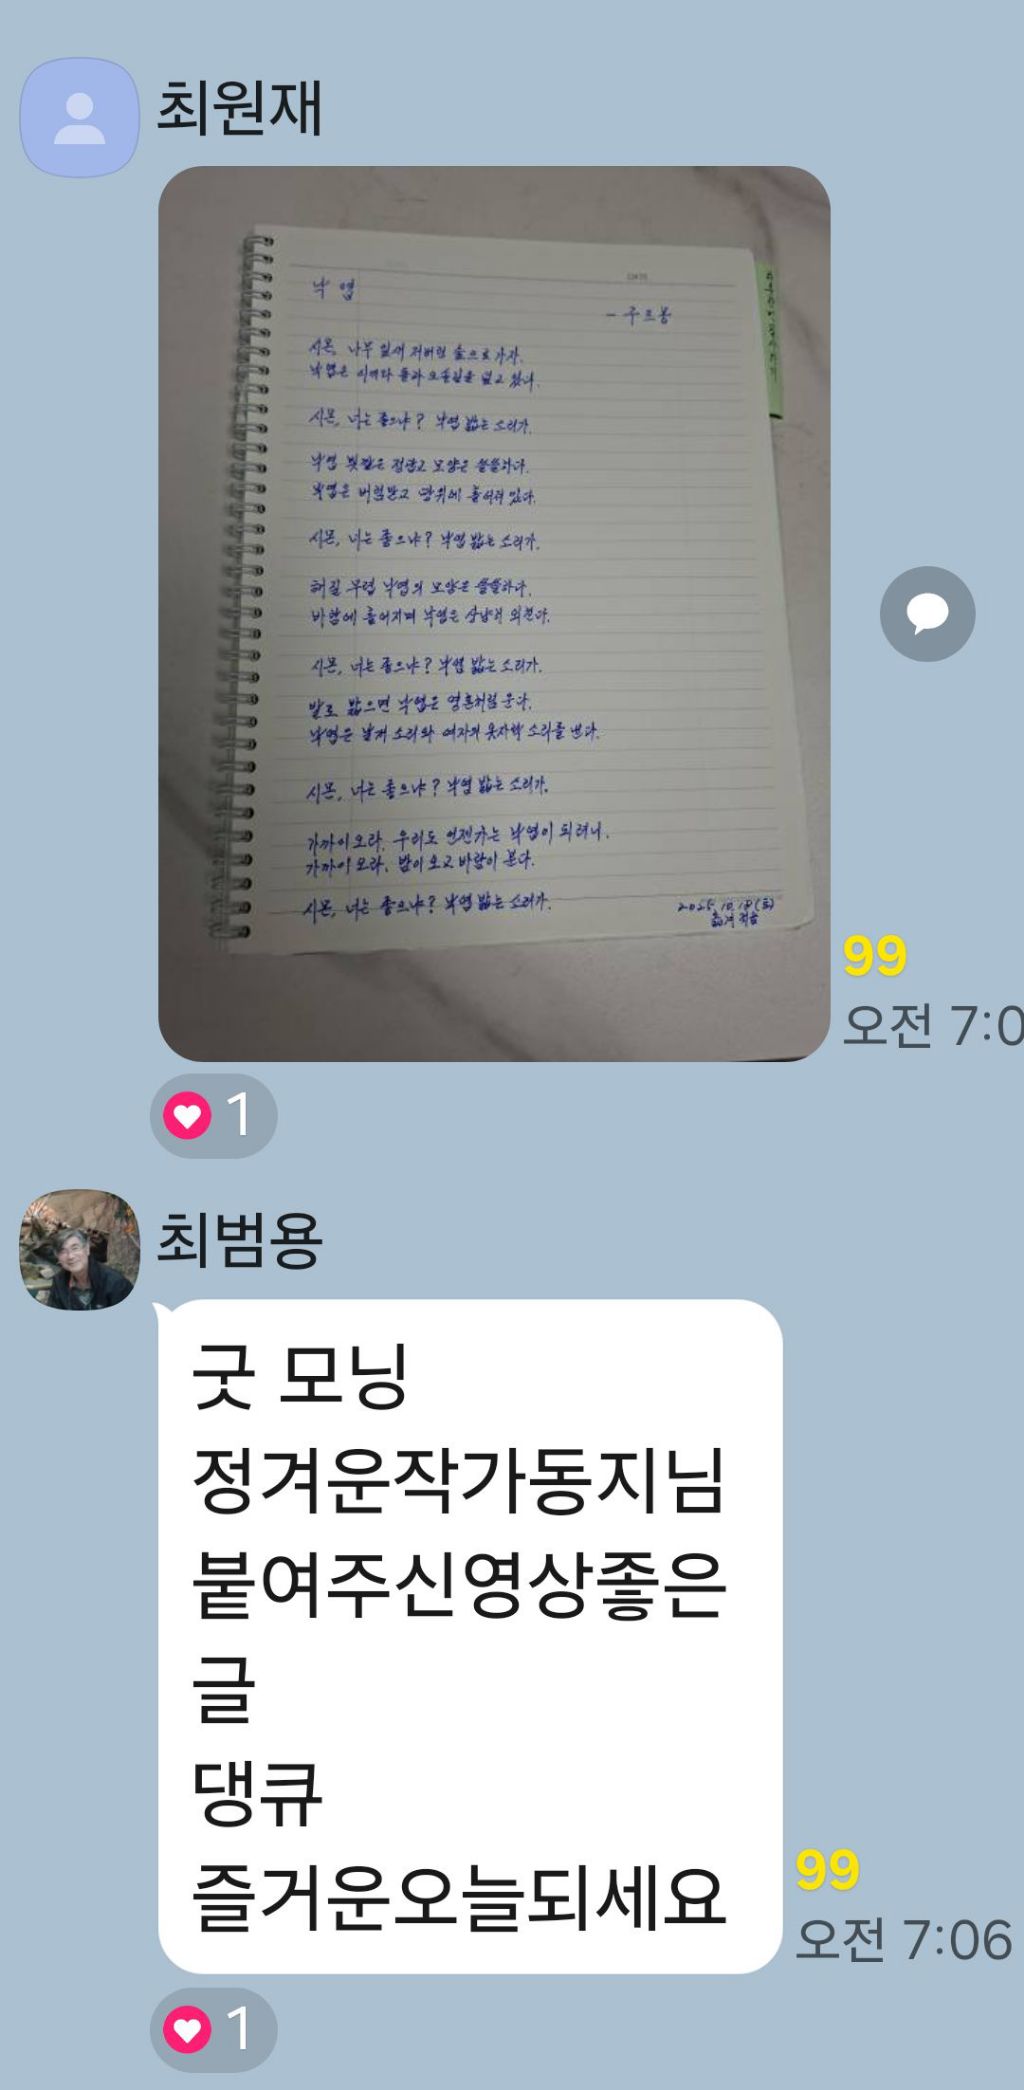 최원재
낙엽
- 구르몽
시몬, 나무 잎새 져버린 숲으로 가자.
낙엽은 이끼와 돌과 오솔길을 덮고 있다.
시몬, 너는 좋으냐? 낙엽 밟는 소리가.
낙엽 빛깔은 정답고 모양은 쓸쓸하다.
낙엽은 버림받고 땅위에 흩어져 있다.
시몬, 너는 좋으냐? 낙엽 밟는 소리가.
해질 무렵 낙엽의 모양은 쓸쓸하다.
바람에 흩어지며 낙엽은 상냥히 외친다.
시몬, 너는 좋으냐? 낙엽 밟는 소리가.
발로 밟으면 낙엽은 영혼처럼 운다.
낙엽은 날개 소리와 여자의 옷자락 소리를 낸다.
시몬, 너는 좋으냐? 낙엽 밟는 소리가.
가까이 오라, 우리도 언젠가는 낙엽이 되려니.
가까이 오라, 밤이 오고 바람이 분다.
시몬, 너는 좋으냐? 낙엽 밟는 소리가.
2025.10.18(토)
99
오전 7:0
1
최범용
굿 모닝
정겨운작가동지님
붙여주신영상좋은
글
댕큐
즐거운오늘되세요
99
오전 7:06
1